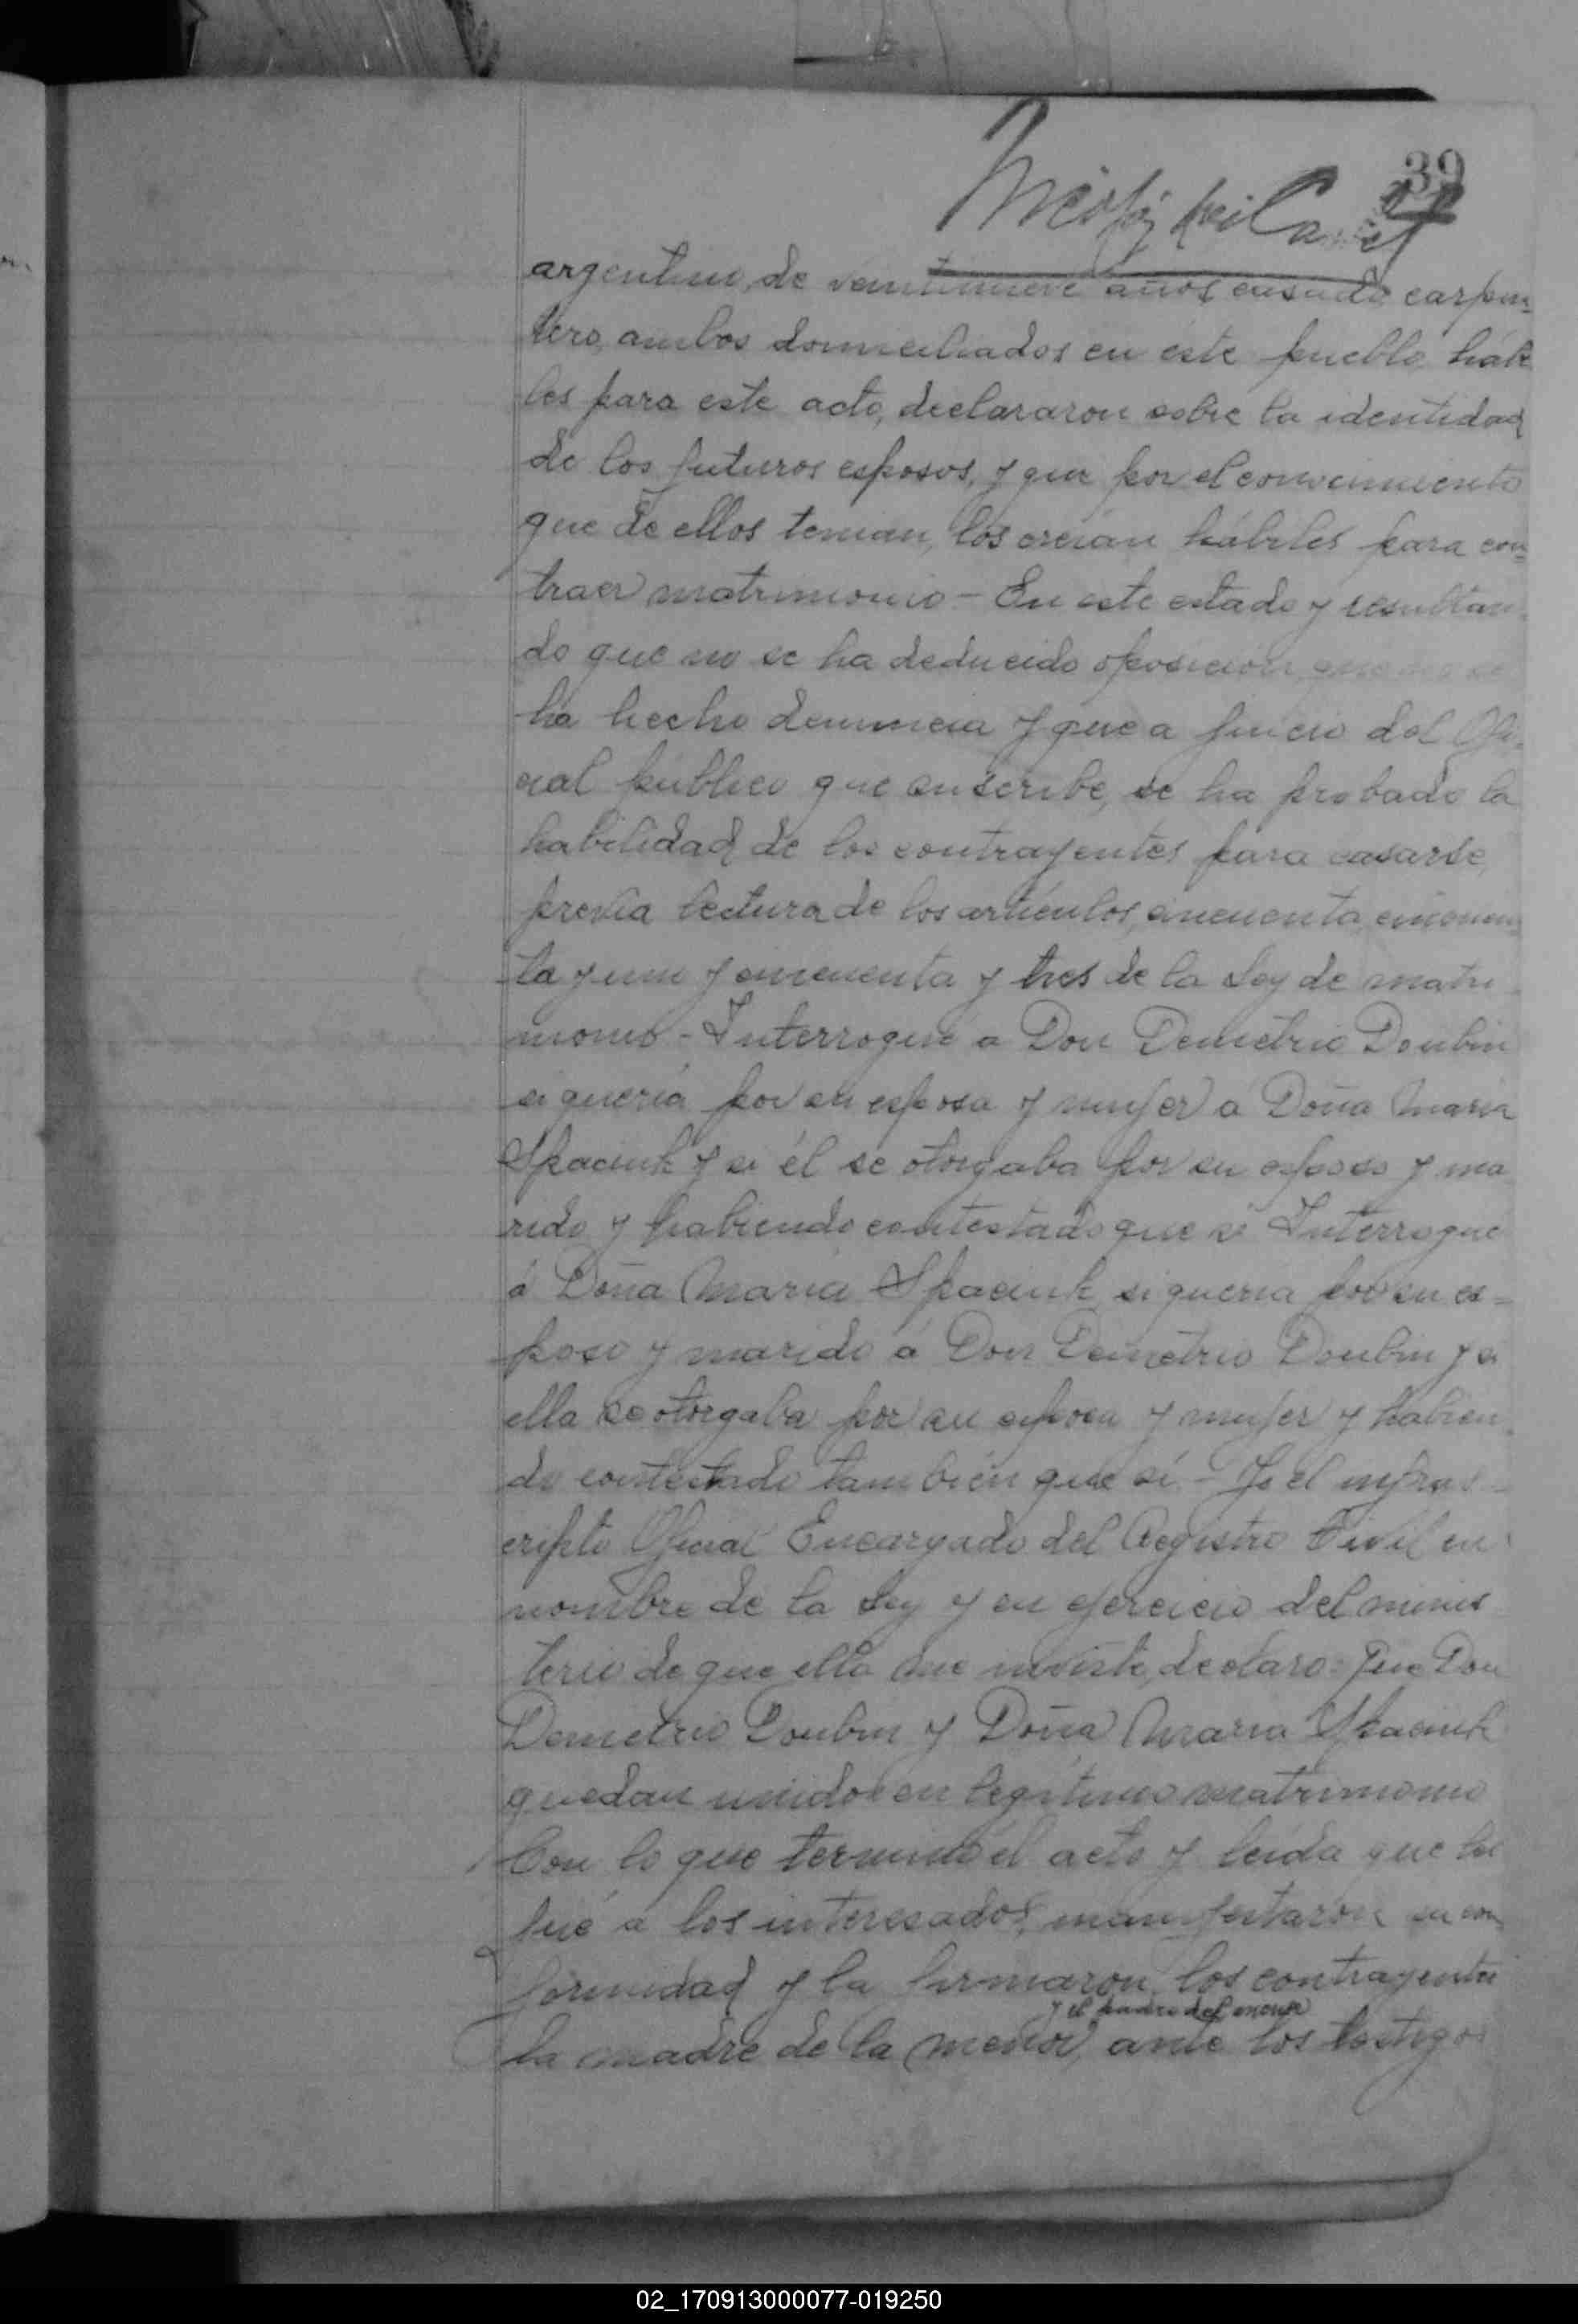 39
argentino, de veintinueve años casado carpin-
tero, ambos domiciliados en este pueblo hábi
les para este acto, declararon sobre la identidad
de los futuros esposos, y que por el conocimiento
que de ellos tenian, los creían hábiles para con=
traer matrimonio - En este estado y resultan
do que no se ha deducido oposición que no se
ha hecho denuncia y que a juicio del Ofi-
cial público que suscribe, se ha probado la
habilidad de los contrayentes para casarse,
previa lectura de los artículos, cincuenta, cincuen
ta y uno y cincuenta y tres de la Ley de matri
monio - Interrogué a Don Demetrio Doubin
si quería por su esposa y mujer a Doña María
Spaciuk y si él se otorgaba por su esposo y ma
rido y habiendo contestado que sí Interrogué
á Doña María Spaciuk si queria por su es-
poso y marido á Don Demetrio Doubin y si
ella se otorgaba por su esposa y mujer y habien
do contestado también que sí - Yo el infras-
cripto Oficial Encargado del Registro Civil en
nombre de la Ley y en ejercicio del minis
terio de que ella me inviste, declaro: Que Don
Demetrio Doubin y Doña María Spaciuk
quedan unidos en legítimo matrimonio
Con lo que terminó el acto y leída que les
fué a los interesados, manifestaron su con
formidad y la firmaron los contrayentes
y el padre del menor
la madre de la menor, ante los testigos
02_170913000077-019250